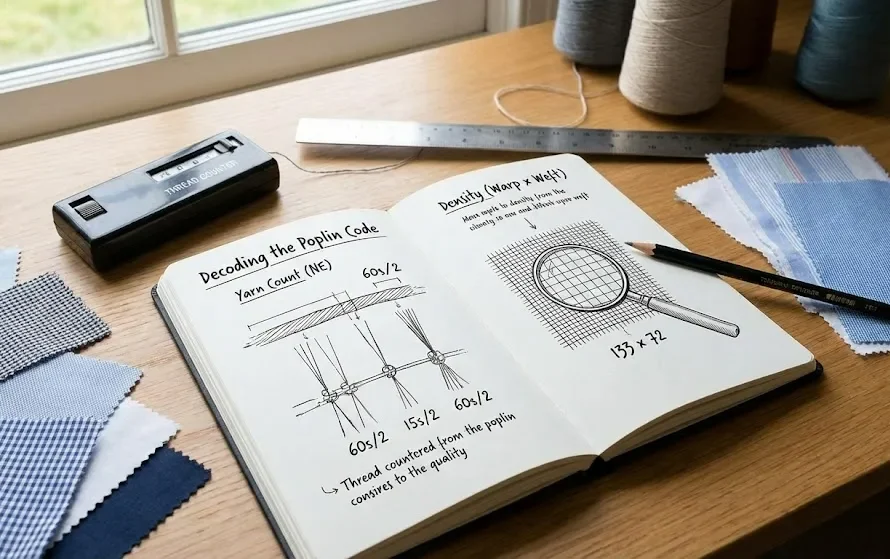 THREAD COUNTER
Decoding the Poplin Code
Yarn Count (NE)
60s/2
60s/2 15s/2 60s/2
Thread countered from the poplin
consires to the quality
Density (Warp x Weft)
to density from the
so one and
133 x 72